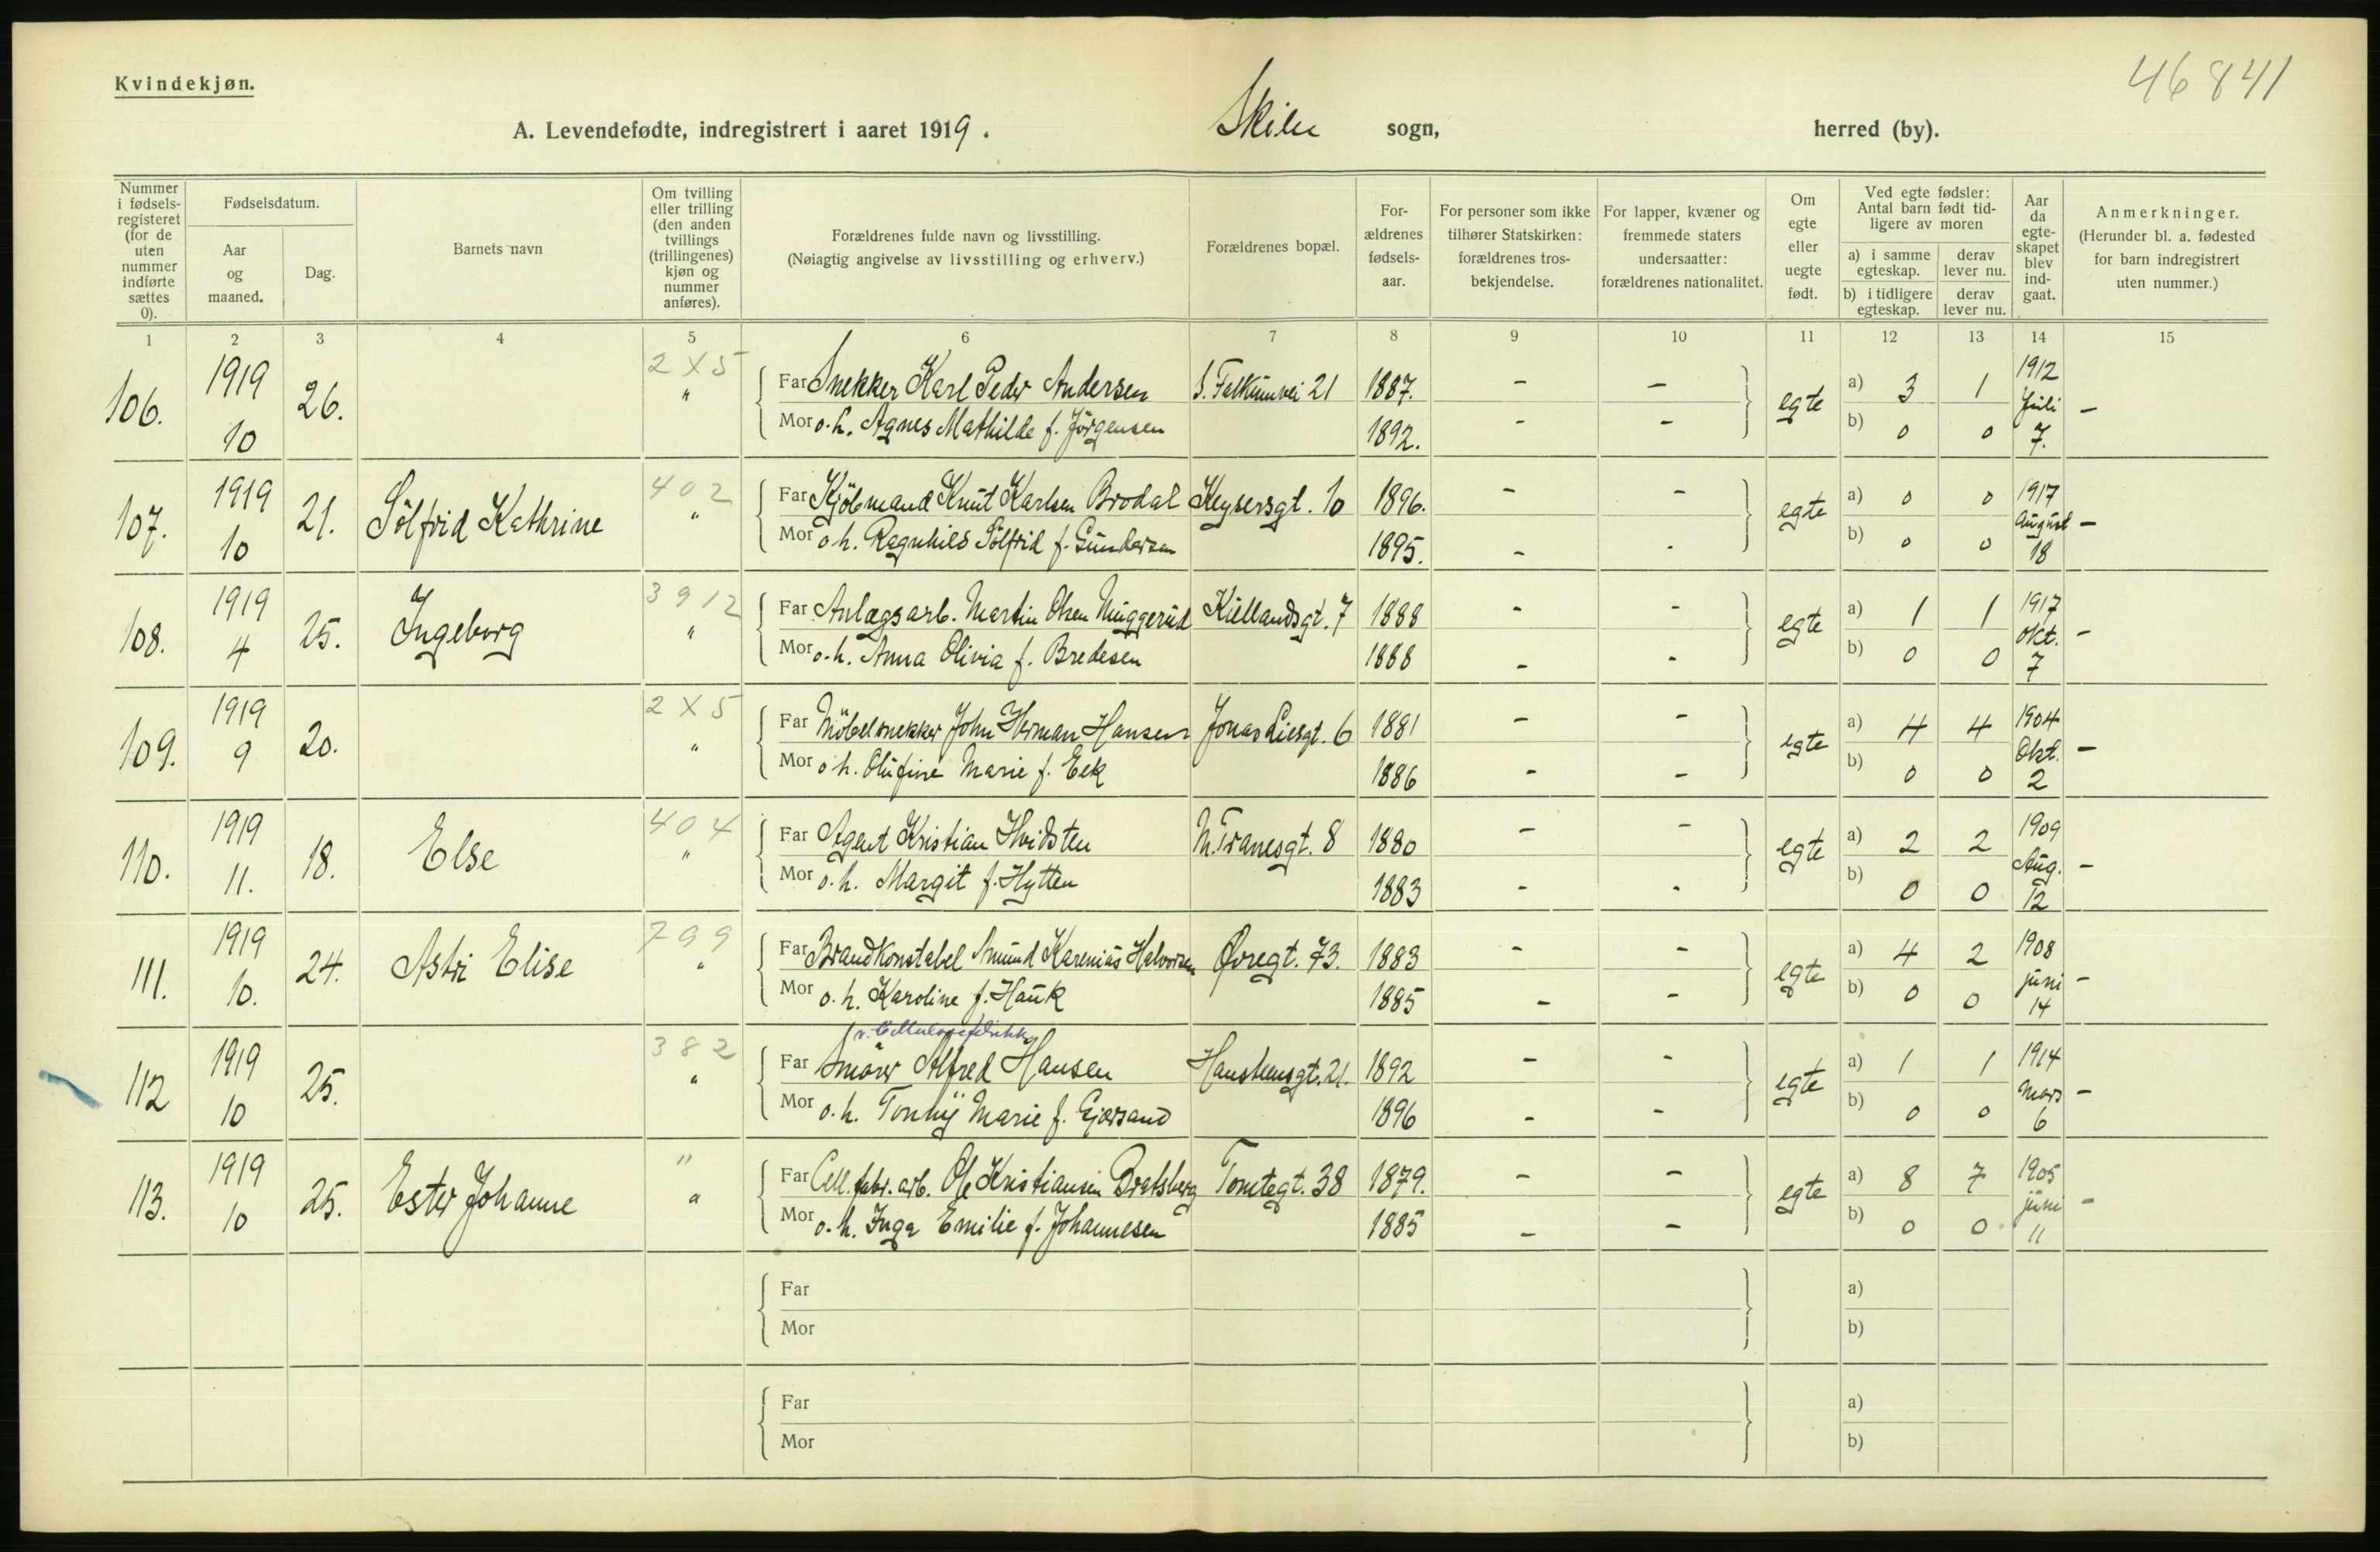 Kvindekjøn.
46841
A. Levendefødte, indregistrert i aaret 1919. Skien sogn, herred (by).
Nummer i fødselsregisteret (for de uten nummer indførte sættes 0).
Fødselsdatum.
Aar og maaned.
Dag.
Barnets navn
Om tvilling eller trilling (den anden tvillings (trillingenes) kjøn og nummer anføres).
Forældrenes fulde navn og livsstilling.
(Nøiagtig angivelse av livsstilling og erhverv.)
Forældrenes bopæl.
Forældrenes fødselsaar.
For personer som ikke tilhører Statskirken: forældrenes trosbekjendelse.
For lapper, kvæner og fremmede staters undersaatter: forældrenes nationalitet.
Om egte eller uegte født.
Ved egte fødsler: Antal barn født tidligere av moren
a) i samme egteskap. derav lever nu.
b) i tidligere egteskap. derav lever nu.
Aar da egteskapet blev indgaat.
Anmerkninger.
(Herunder bl. a. fødested for barn indregistrert uten nummer.)
1 2 3 4 5 6 7 8 9 10 11 12 13 14 15
106. 1919 10 26. 2 X 5 "
Far Snekker Karl Peder Andersen S. Falkumvei 21 1887. - - egte a) 3 1 1912 Juli 7. -
Mor o. h. Agnes Mathilde f. Jörgensen 1892. - - b) 0 0
107. 1919 10 21. Sölfrid Kathrine 402 "
Far Kjöbmand Knut Karlsen Brodal Keysersgt. 10 1896. - - egte a) 0 0 1917 August 18 -
Mor o h. Ragnhild Sölfrid f. Gundersen 1895. - - b) 0 0
108. 1919 4 25. Ingeborg 3912 "
Far Anlægsarb. Martin Olsen Muggerud Kiellandsgt. 7 1888 - - egte a) 1 1 1917 Okt. 7 -
Mor o. h. Anna Olivia f. Bredesen 1888 - - b) 0 0
109. 1919 9 20. 2 X 5 "
Far Möbelsnekker John Herman Hansen Jonas Liesgt. 6 1881 - - egte a) 4 4 1904 Okt. 2 -
Mor o h. Olufine Marie f. Eek 1886 - - b) 0 0
110. 1919 11. 18. Else 404 "
Far Agent Kristian Hvidsten M. Tranesgt. 8 1880 - - egte a) 2 2 1909 Aug. 12 -
Mor o. h. Margit f. Hytten 1883 - - b) 0 0
111. 1919 10. 24. Astri Elise 799 "
Far Brandkonstabel Amund Karenius Halvorsen Övregt. 73. 1883 - - egte a) 4 2 1908 juni 14 -
Mor o. h. Karoline f. Hauk 1885 - - b) 0 0
v. Cellulosefabrikk
112 1919 10 25. 382 "
Far Smörer Alfred Hansen 1892 - - egte a) 1 1 1914 Mars 6 -
Mor o. h. Marie f. Gjersand 1896 - - b) 0 0
113. 1919 10 25. Ester Johanne " "
Far Cell. fabr. arb. Ole Kristiansen Bratsberg Tomtegt. 38 1879. - - egte a) 8 7 1905 juni 11 -
Mor o. h. Inga Emilie f. Johannesen 1885 - - b) 0 0
Far a)
Mor b)
Far a)
Mor b)